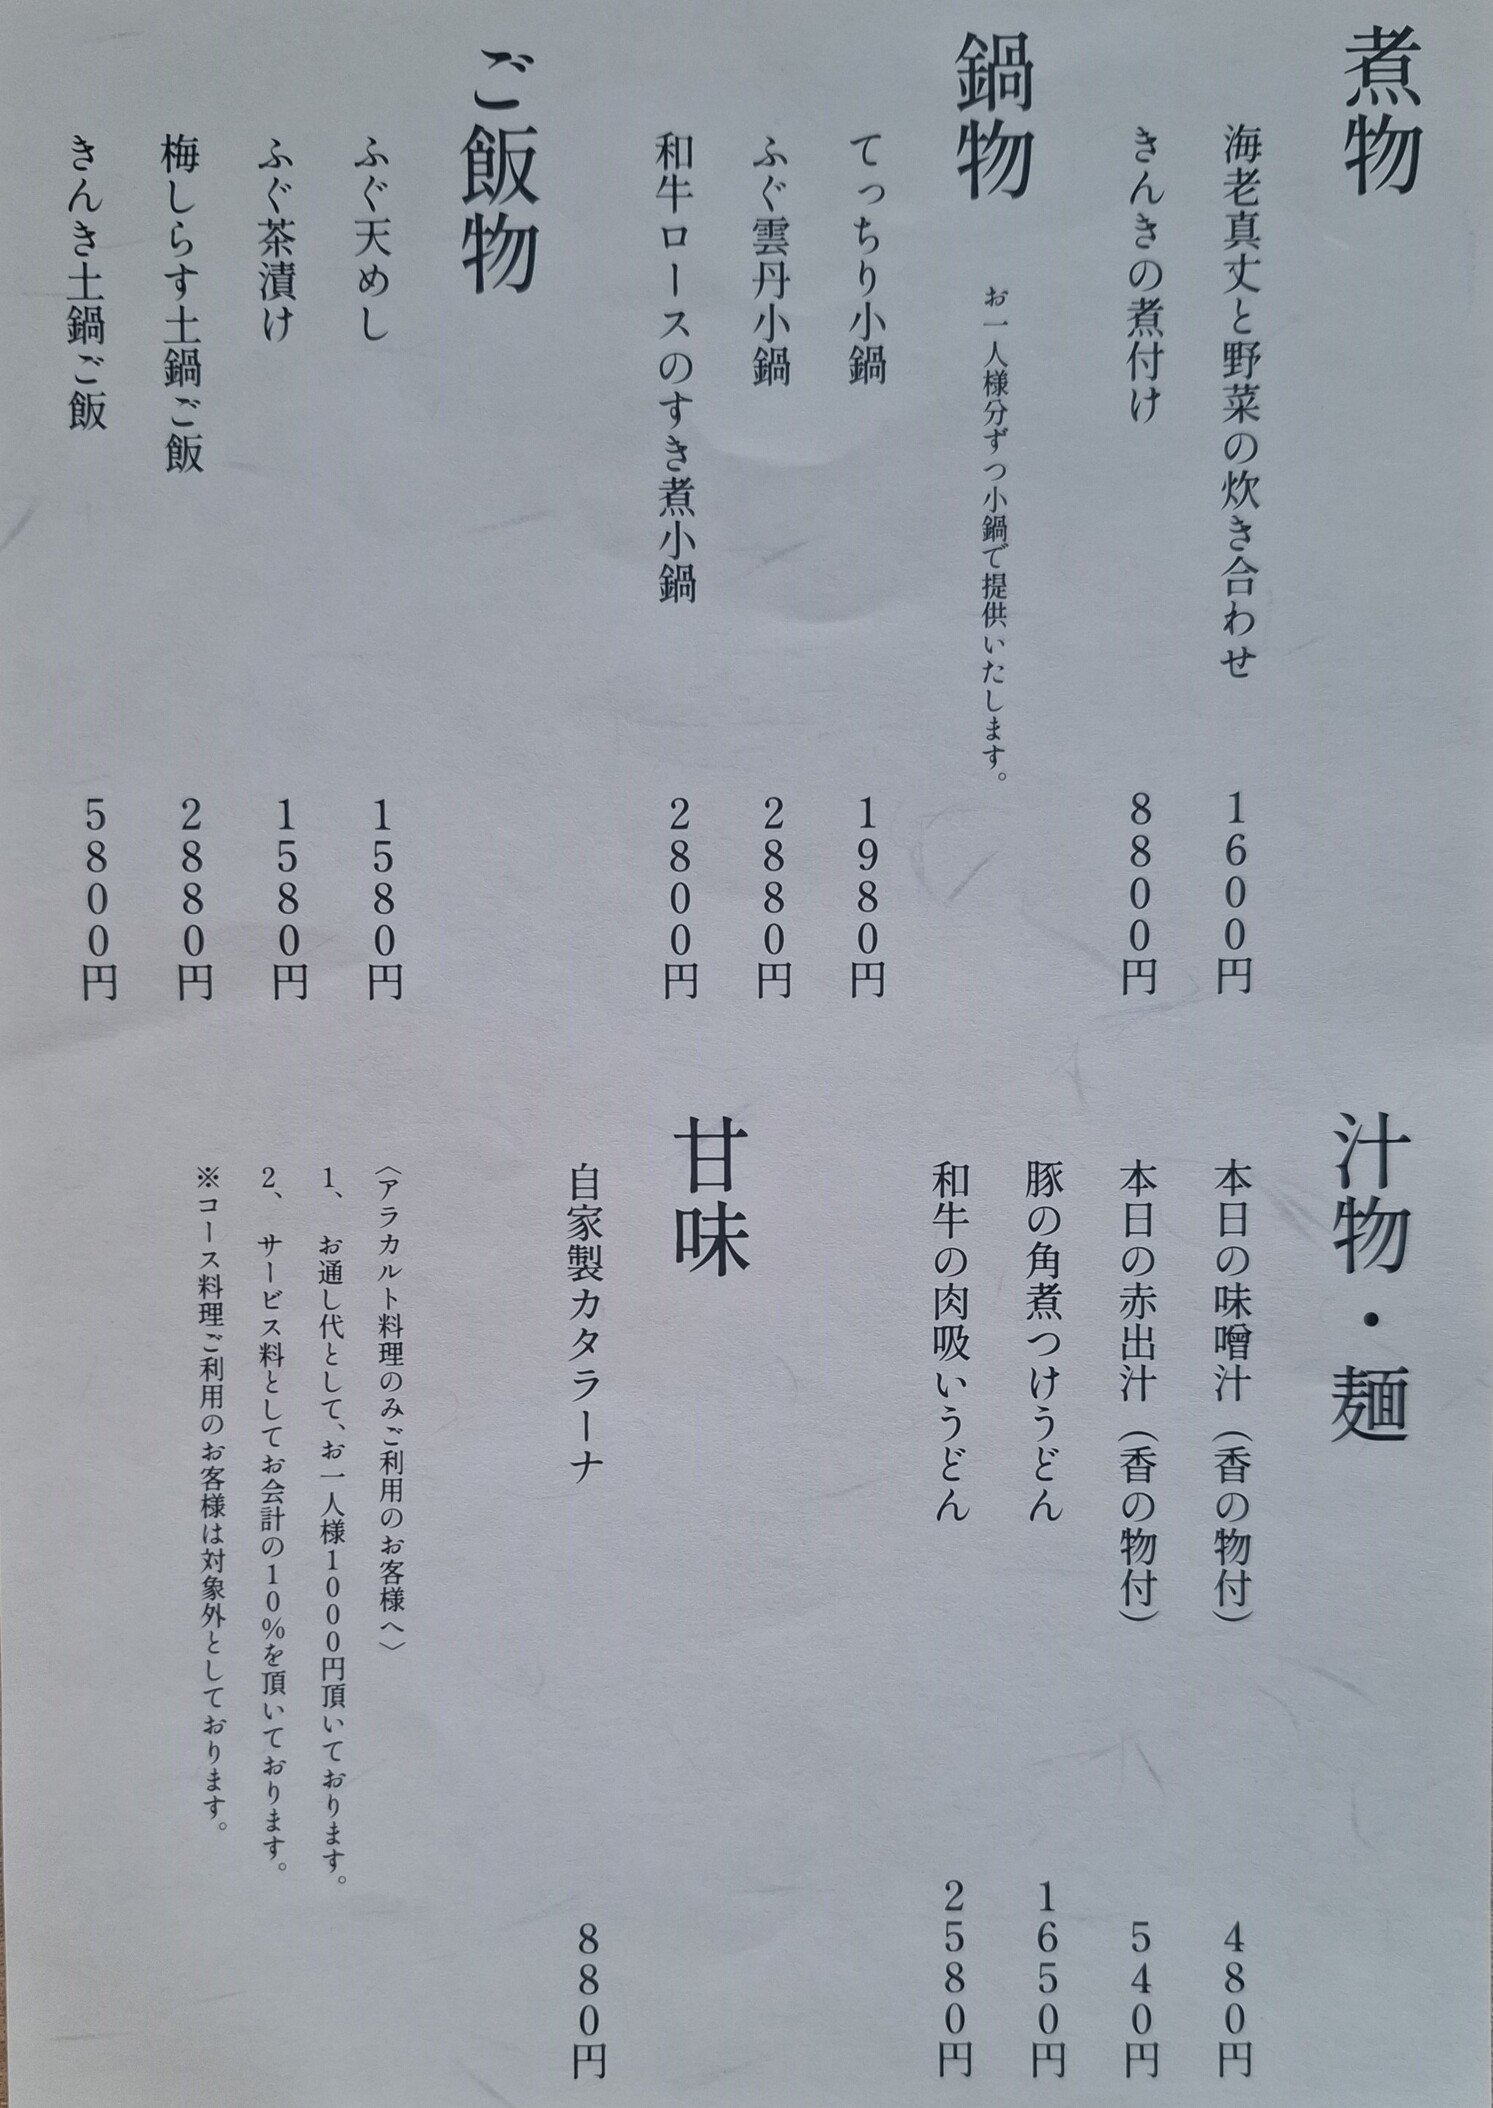 煮物
海老真丈と野菜の炊き合わせ 1600円
きんきの煮付け 8800円
鍋物 お一人様分ずつ小鍋で提供いたします。
てっちり小鍋 1980円
ふぐ雲丹小鍋 2880円
和牛ロースのすき煮小鍋 2800円
ご飯物
ふぐ天めし 1580円
ふぐ茶漬け 1580円
梅しらす土鍋ご飯 2880円
きんき土鍋ご飯 5800円
汁物・麺
本日の味噌汁（香の物付） 480円
本日の赤出汁（香の物付） 540円
豚の角煮つけうどん 1650円
和牛の肉吸いうどん 2580円
甘味
自家製カタラーナ 880円
〈アラカルト料理のみご利用のお客様へ〉
1、お通し代として、お一人様1000円頂いております。
2、サービス料としてお会計の10%を頂いております。
※コース料理ご利用のお客様は対象外としております。